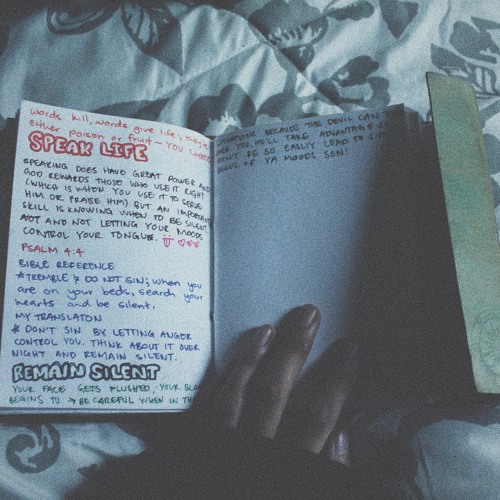 words kill, words give life; they're
either poison or fruit – YOU CHOOSE
SPEAK LIFE
SPEAKING DOES HAVE GREAT POWER AND
GOD REWARDS THOSE WHO USE IT RIGHT
(WHICH IS WHEN YOU USE IT TO SERVE
HIM OR PRAISE HIM) BUT AN IMPORTANT
SKILL IS KNOWING WHEN TO BE SILENT
AND NOT LETTING YOUR MOODS
CONTROL YOUR TONGUE.
PSALM 4:4
BIBLE REFERENCE
*TREMBLE & DO NOT SIN; when you
are on your beds, search your
hearts and be silent.
MY TRANSLATON
* DON'T SIN BY LETTING ANGER
CONTROL YOU. THINK ABOUT IT OVER
NIGHT AND REMAIN SILENT.
REMAIN SILENT
YOUR FACE GETS FLUSHED, YOUR BLO
BEGINS TO → BE CAREFUL WHEN IN TH
SITUATIONS BECAUSE THE DEVIL CAN T
OVER YOU, HE'LL TAKE ADVANTAGE
DON'T BE SO EASILY LEAD TO SIN
OF YA MOODS SON!